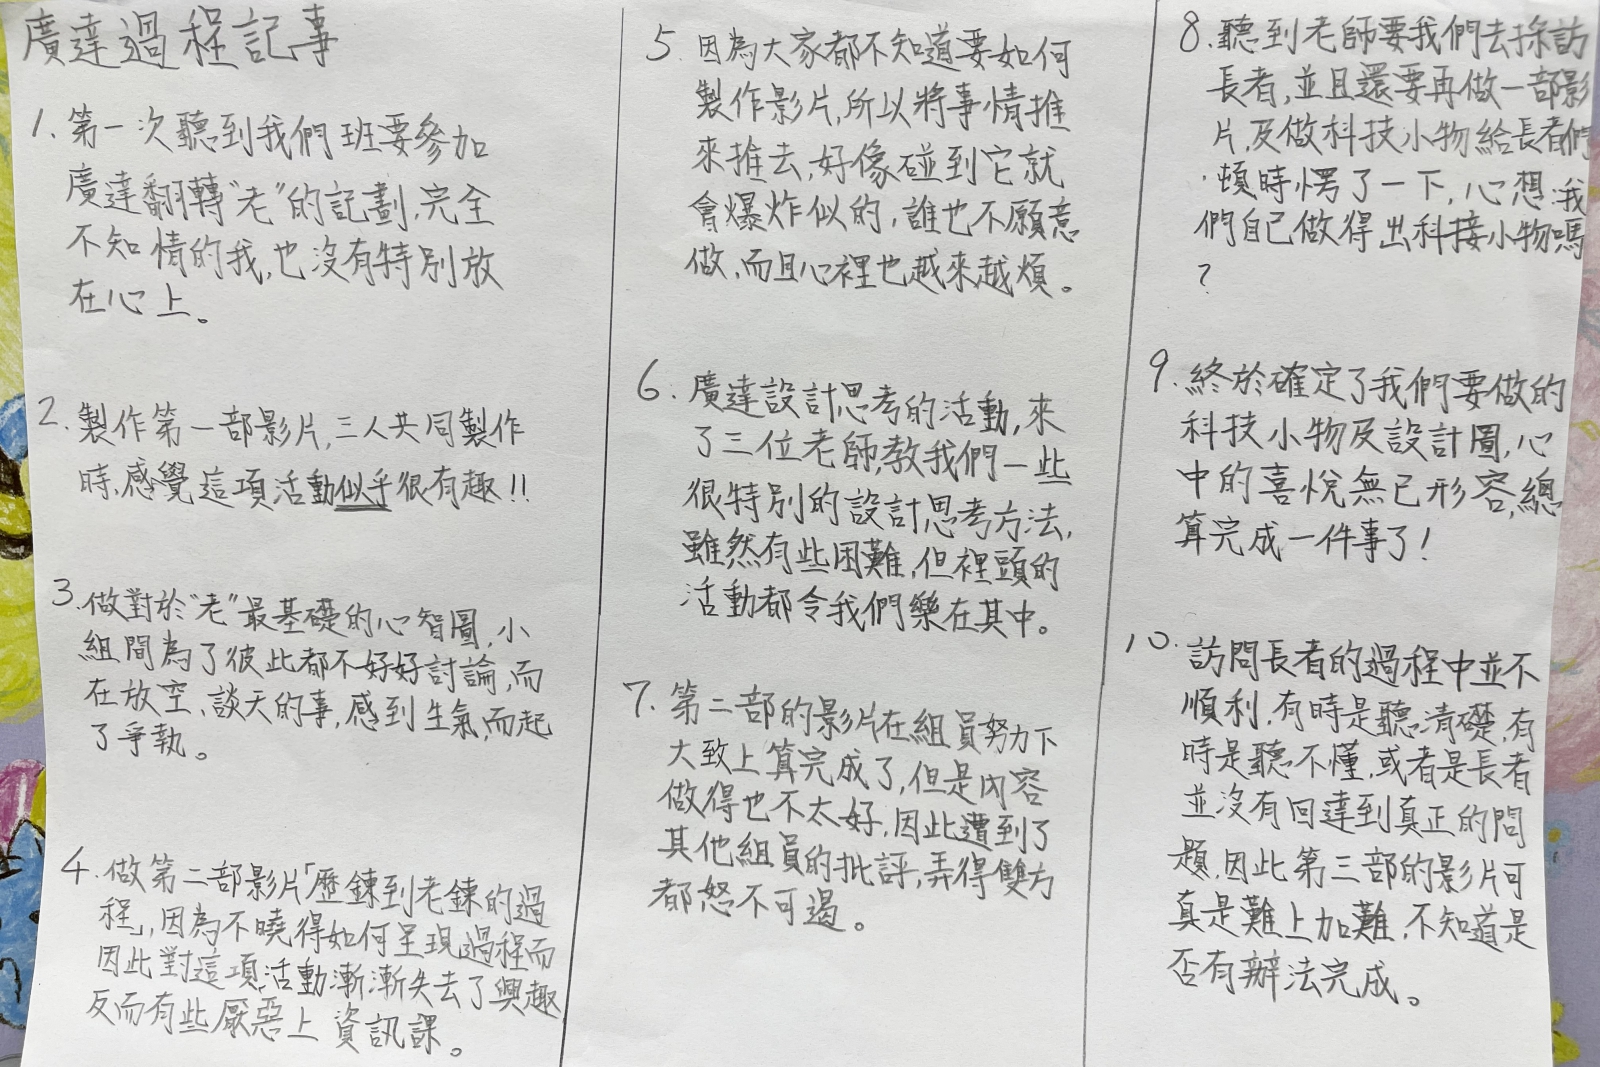 廣達過程記事
1. 第一次聽到我們班要參加
廣達翻轉"老"的記劃,完全
不知情的我,也沒有特別放
在心上。
2. 製作第一部影片,三人共同製作
時,感覺這項活動似乎很有趣!!
3. 做對於"老"最基礎的心智圖,小
組間為了彼此都不好好討論,而
在放空、談天的事,感到生氣,而起
了爭執。
4. 做第二部影片「歷鍊到老鍊的過
程,因為不曉得如何呈現過程而
因此對這項活動漸漸失去了興趣
反而有些厭惡上資訊課。
5. 因為大家都不知道要如何
製作影片,所以將事情推
來推去,好像碰到它就
會爆炸似的,誰也不願意
做,而且心裡也越來越煩。
6. 廣達設計思考的活動,來
了三位老師,教我們一些
很特別的設計思考方法,
雖然有些困難,但裡頭的
活動都令我們樂在其中。
7. 第二部的影片在組員努力下
大致上算完成了,但是內容
做得也不太好,因此遭到了
其他組員的批評,弄得雙方
都怒不可遏。
8. 聽到老師要我們去採訪
長者,並且還要再做一部影
片,及做科技小物給長者們
,頓時愣了一下,心想:我
們自己做得出科接小物嗎
?
9. 終於確定了我們要做的
科技小物及設計圖,心
中的喜悅無已形容,總
算完成一件事了!
10. 訪問長者的過程中並不
順利,有時是聽清礎,有
時是聽不懂,或者是長者
並沒有回達到真正的問
題,因此第三部的影片可
真是難上加難,不知道是
否有辦法完成。